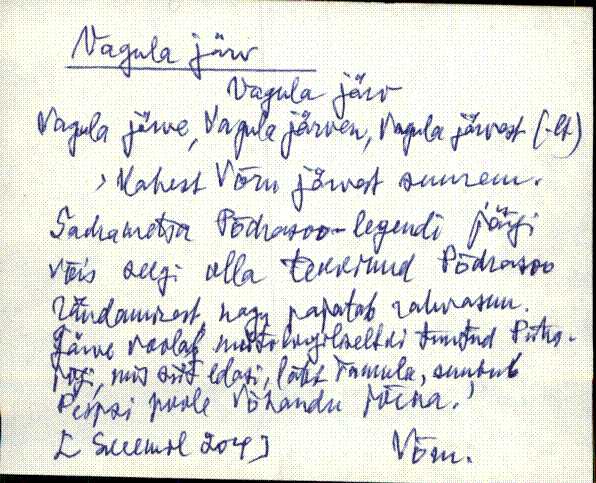 Vagula järv
Vagula järv
Vagula järve, Vagula järven, Vagula järvest (-lt)
> Kahest Võru järvest suurem.
Põdrasoo-legendi järgi
võis seegi olla tekkinud Põdrasoo
rändamisest, nagu pajatab rahvasuu.
Järve voolab mütoloogiliseltki tuntud Püha-
jõgi, mis siit edasi, läbi Tamula, suubub
Peipsi poole Võhandu jõena.
Võru.